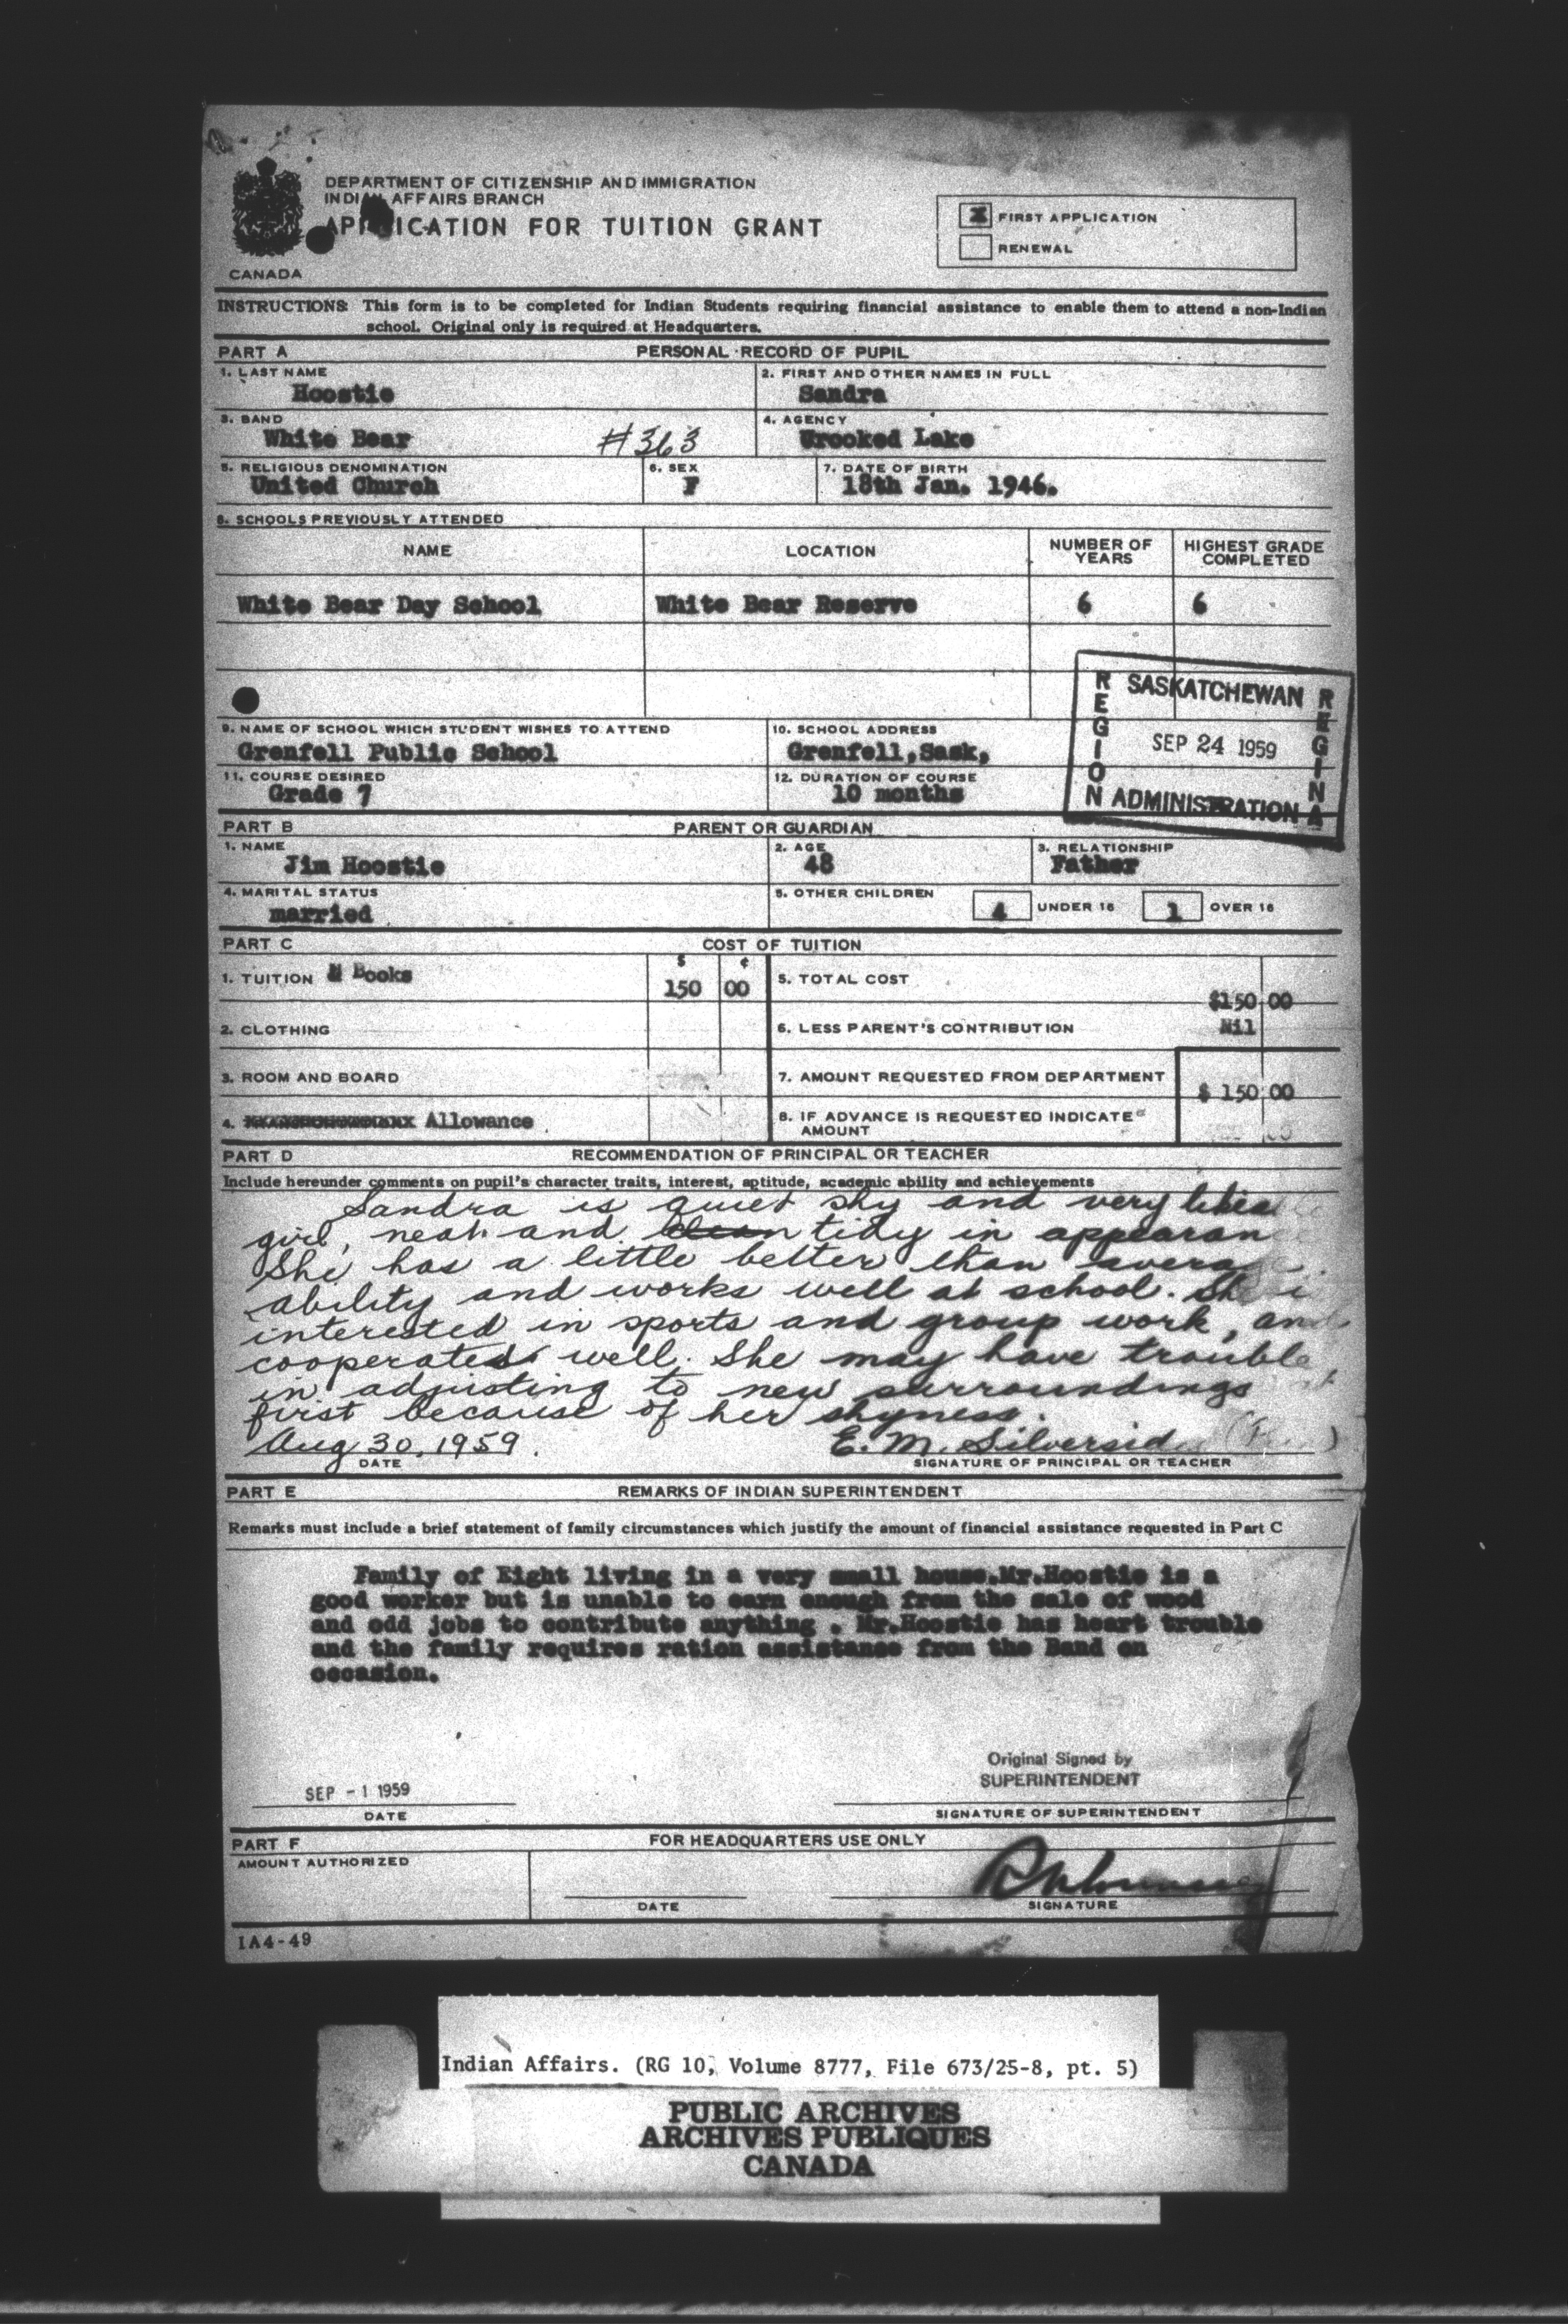 DEPARTMENT OF CITIZENSHIP AND IMMIGRATION
INDIAN AFFAIRS BRANCH
APPLICATION FOR TUITION GRANT
CANADA
X FIRST APPLICATION
RENEWAL
INSTRUCTIONS: This form is to be completed for Indian Students requiring financial assistance to enable them to attend a non-Indian
school. Original only is required at Headquarters.
PART A PERSONAL RECORD OF PUPIL
1. LAST NAME 2. FIRST AND OTHER NAMES IN FULL
Hoostie Sandra
3. BAND 4. AGENCY
White Bear #363 Crooked Lake
5. RELIGIOUS DENOMINATION 6. SEX 7. DATE OF BIRTH
United Church F 18th Jan. 1946.
8. SCHOOLS PREVIOUSLY ATTENDED
NAME LOCATION NUMBER OF YEARS HIGHEST GRADE COMPLETED
White Bear Day School White Bear Reserve 6 6
REGION SASKATCHEWAN REGINA
SEP 24 1959
ADMINISTRATION
9. NAME OF SCHOOL WHICH STUDENT WISHES TO ATTEND 10. SCHOOL ADDRESS
Grenfell Public School Grenfell,Sask,
11. COURSE DESIRED 12. DURATION OF COURSE
Grade 7 10 months
PART B PARENT OR GUARDIAN
1. NAME 2. AGE 3. RELATIONSHIP
Jim Hoostie 48 Father
4. MARITAL STATUS 5. OTHER CHILDREN 4 UNDER 16 1 OVER 16
married
PART C COST OF TUITION
$ ¢
1. TUITION & Books 150 00 5. TOTAL COST $150 00
2. CLOTHING 6. LESS PARENT'S CONTRIBUTION Nil
3. ROOM AND BOARD 7. AMOUNT REQUESTED FROM DEPARTMENT $ 150 00
4. Allowance 8. IF ADVANCE IS REQUESTED INDICATE
AMOUNT
PART D RECOMMENDATION OF PRINCIPAL OR TEACHER
Include hereunder comments on pupil's character traits, interest, aptitude, academic ability and achievements
Sandra is quiet shy and very
girl, neat and clean tidy in appearan
She has a little better than average
ability and works well at school. She i
interested in sports and group work, and
cooperates well. She may have trouble
in adjusting to new surroundings at
first because of her shyness.
Aug 30, 1959. E. M. Silversid
DATE SIGNATURE OF PRINCIPAL OR TEACHER
PART E REMARKS OF INDIAN SUPERINTENDENT
Remarks must include a brief statement of family circumstances which justify the amount of financial assistance requested in Part C
Family of Eight living in a very small house.Mr.Hoostie is a
good worker but is unable to earn enough from the sale of wood
and odd jobs to contribute anything . Mr.Hoostie has heart trouble
and the family requires ration assistance from the Band on
occasion.
Original Signed by
SEP - 1 1959 SUPERINTENDENT
DATE SIGNATURE OF SUPERINTENDENT
PART F FOR HEADQUARTERS USE ONLY
AMOUNT AUTHORIZED
DATE SIGNATURE
IA4-49
Indian Affairs. (RG 10, Volume 8777, File 673/25-8, pt. 5)
PUBLIC ARCHIVES
ARCHIVES PUBLIQUES
CANADA